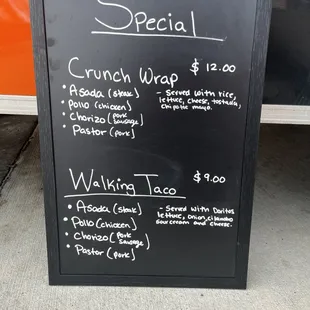 Special
Crunch Wrap $12.00
• Asada (steak) - Served with rice,
• Pollo (chicken) lettuce, cheese, tostada,
• Chorizo (pork sausage) chipotle mayo.
• Pastor (pork)
Walking Taco $9.00
• Asada (steak) - Served with Doritos
• Pollo (chicken) lettuce, onion, cilantro
• Chorizo (pork sausage) sour cream and cheese.
• Pastor (pork)